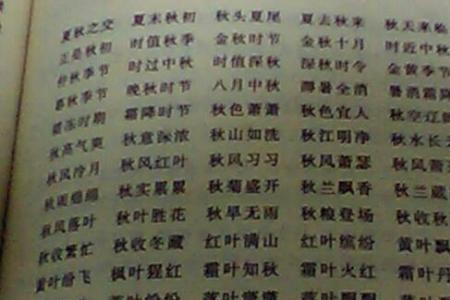 夏秋之交 夏末秋初 秋头夏尾 夏去秋来 秋天来临
正是秋初 时值秋季 金秋时节 金秋十月 时近中秋
仲秋季节 时过中秋 时值深秋 深秋时令 金黄季节
暮秋季节 晚秋时节 八月中秋 溽暑全消 暑消霜
霜冻时期 霜降时节 秋色萧萧 秋色宜人 秋空辽
秋高气爽 秋意深浓 秋山如洗 秋江明净 秋水长
秋风冷月 秋风红叶 秋风习习 秋风萧瑟 秋风萧
秋雨绵绵 秋实累累 秋菊盛开 秋兰飘香 秋兰
秋风落叶 秋叶胜花 秋旱无雨 秋粮登场 秋收秋
秋收繁忙 秋收冬藏 红叶满山 红叶缤纷 黄叶飘
黄叶纷飞 枫叶猩红 霜叶知秋 霜叶火红 霜叶丹